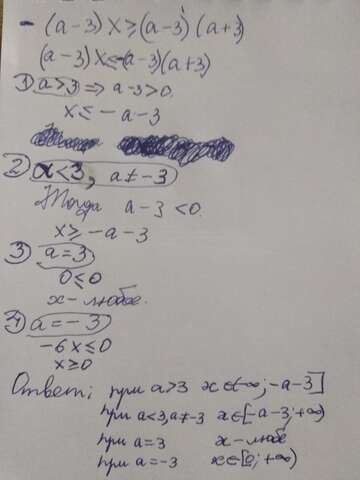 - (a-3)x ≥ (a-3)(a+3)
(a-3)x ≤ -(a-3)(a+3)
1) a>3 ⇒ a-3>0
x ≤ -a-3
2) a<3, a≠-3
Тогда a-3<0
x ≥ -a-3
3) a=3
0≤0
x-любое.
4) a=-3
-6x≤0
x≥0
Ответ: при a>3 x∈(-∞; -a-3]
при a<3, a≠-3 x∈[-a-3; +∞)
при a=3 x-любое
при a=-3 x∈[0; +∞)